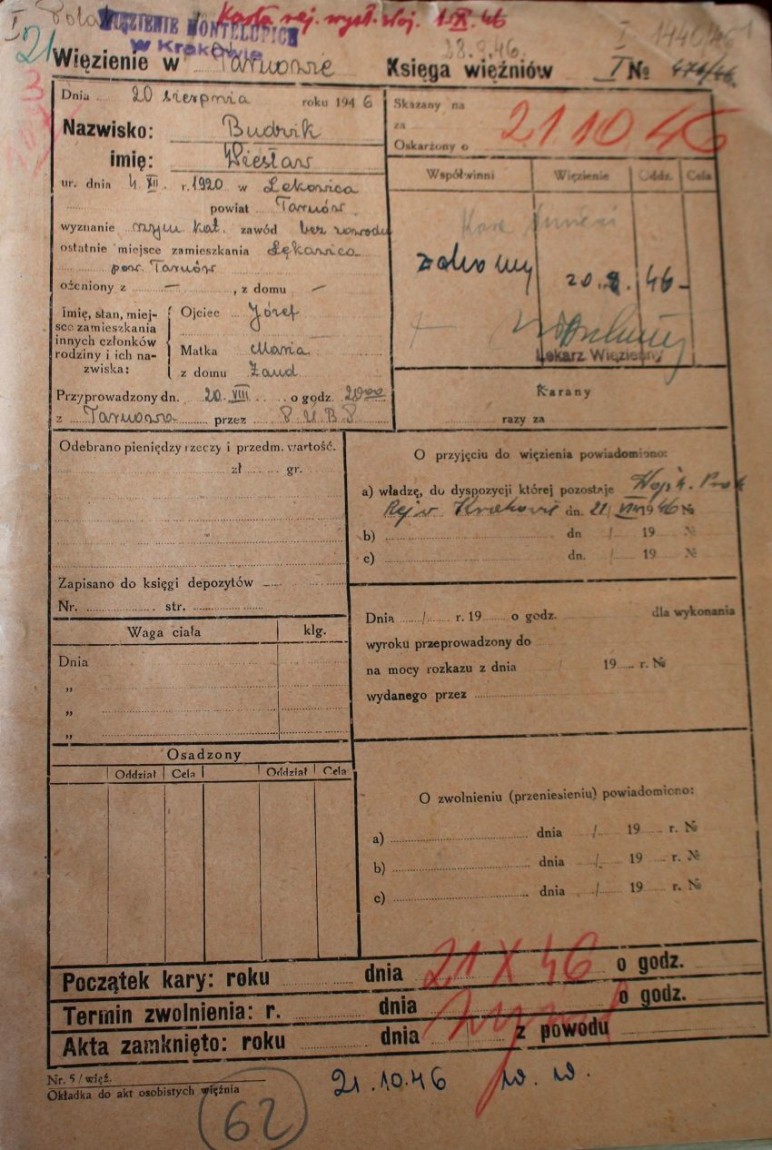 WIĘZIENIE MONTELUPICH
w Krakowie
Karta rej. wysł. 1.X.46
28.9.46.
I 1440/46
21
Więzienie w Tarnowie Księga więźniów I № 476/46.
3
Dnia 20 sierpnia roku 1946
Nazwisko: Budzik
imię: Wiesław
ur. dnia 4. XII. r. 1920 w Łękawica
powiat Tarnów
wyznanie rzym kat. zawód bez zawodu
ostatnie miejsce zamieszkania Łękawica
pow. Tarnów
ożeniony z — , z domu —
Imię, stan, miejsce zamieszkania innych członków rodziny i ich nazwiska:
Ojciec Józef
Matka Maria
z domu Zaud
Przyprowadzony dn. 20. VIII. o godz. 20oo
z Tarnowa przez P.U.B.P.
Skazany na
za
Oskarżony o
21.10.46
Współwinni Więzienie Oddz. Cela
Kara śmierci
zdrowy 20.8.46-
Lekarz Więzienny
Karany
razy za
Odebrano pieniędzy rzeczy i przedm. wartość.
zł gr.
Zapisano do księgi depozytów —
Nr. str.
O przyjęciu do więzienia powiadomiono:
a) władzę, do dyspozycji której pozostaje Wojsk. Prok
Rej w Krakowie dn. 21/VIII 1946 №
b) dn / 19 №
c) dn. / 19 №
Waga ciała klg.
Dnia
„
„
„
Dnia / r. 19 o godz. dla wykonania
wyroku przeprowadzony do
na mocy rozkazu z dnia 19 r. №
wydanego przez
Osadzony
Oddział Cela Oddział Cela
O zwolnieniu (przeniesieniu) powiadomiono:
a) dnia / 19 r. №
b) dnia / 19 r. №
c) dnia / 19 r. №
Początek kary: roku dnia 21 X 46 o godz.
Termin zwolnienia: r. dnia o godz.
Akta zamknięto: roku dnia z powodu
Nr. 5 / więź.
Okładka do akt osobistych więźnia
21.10.46 w. w.
62